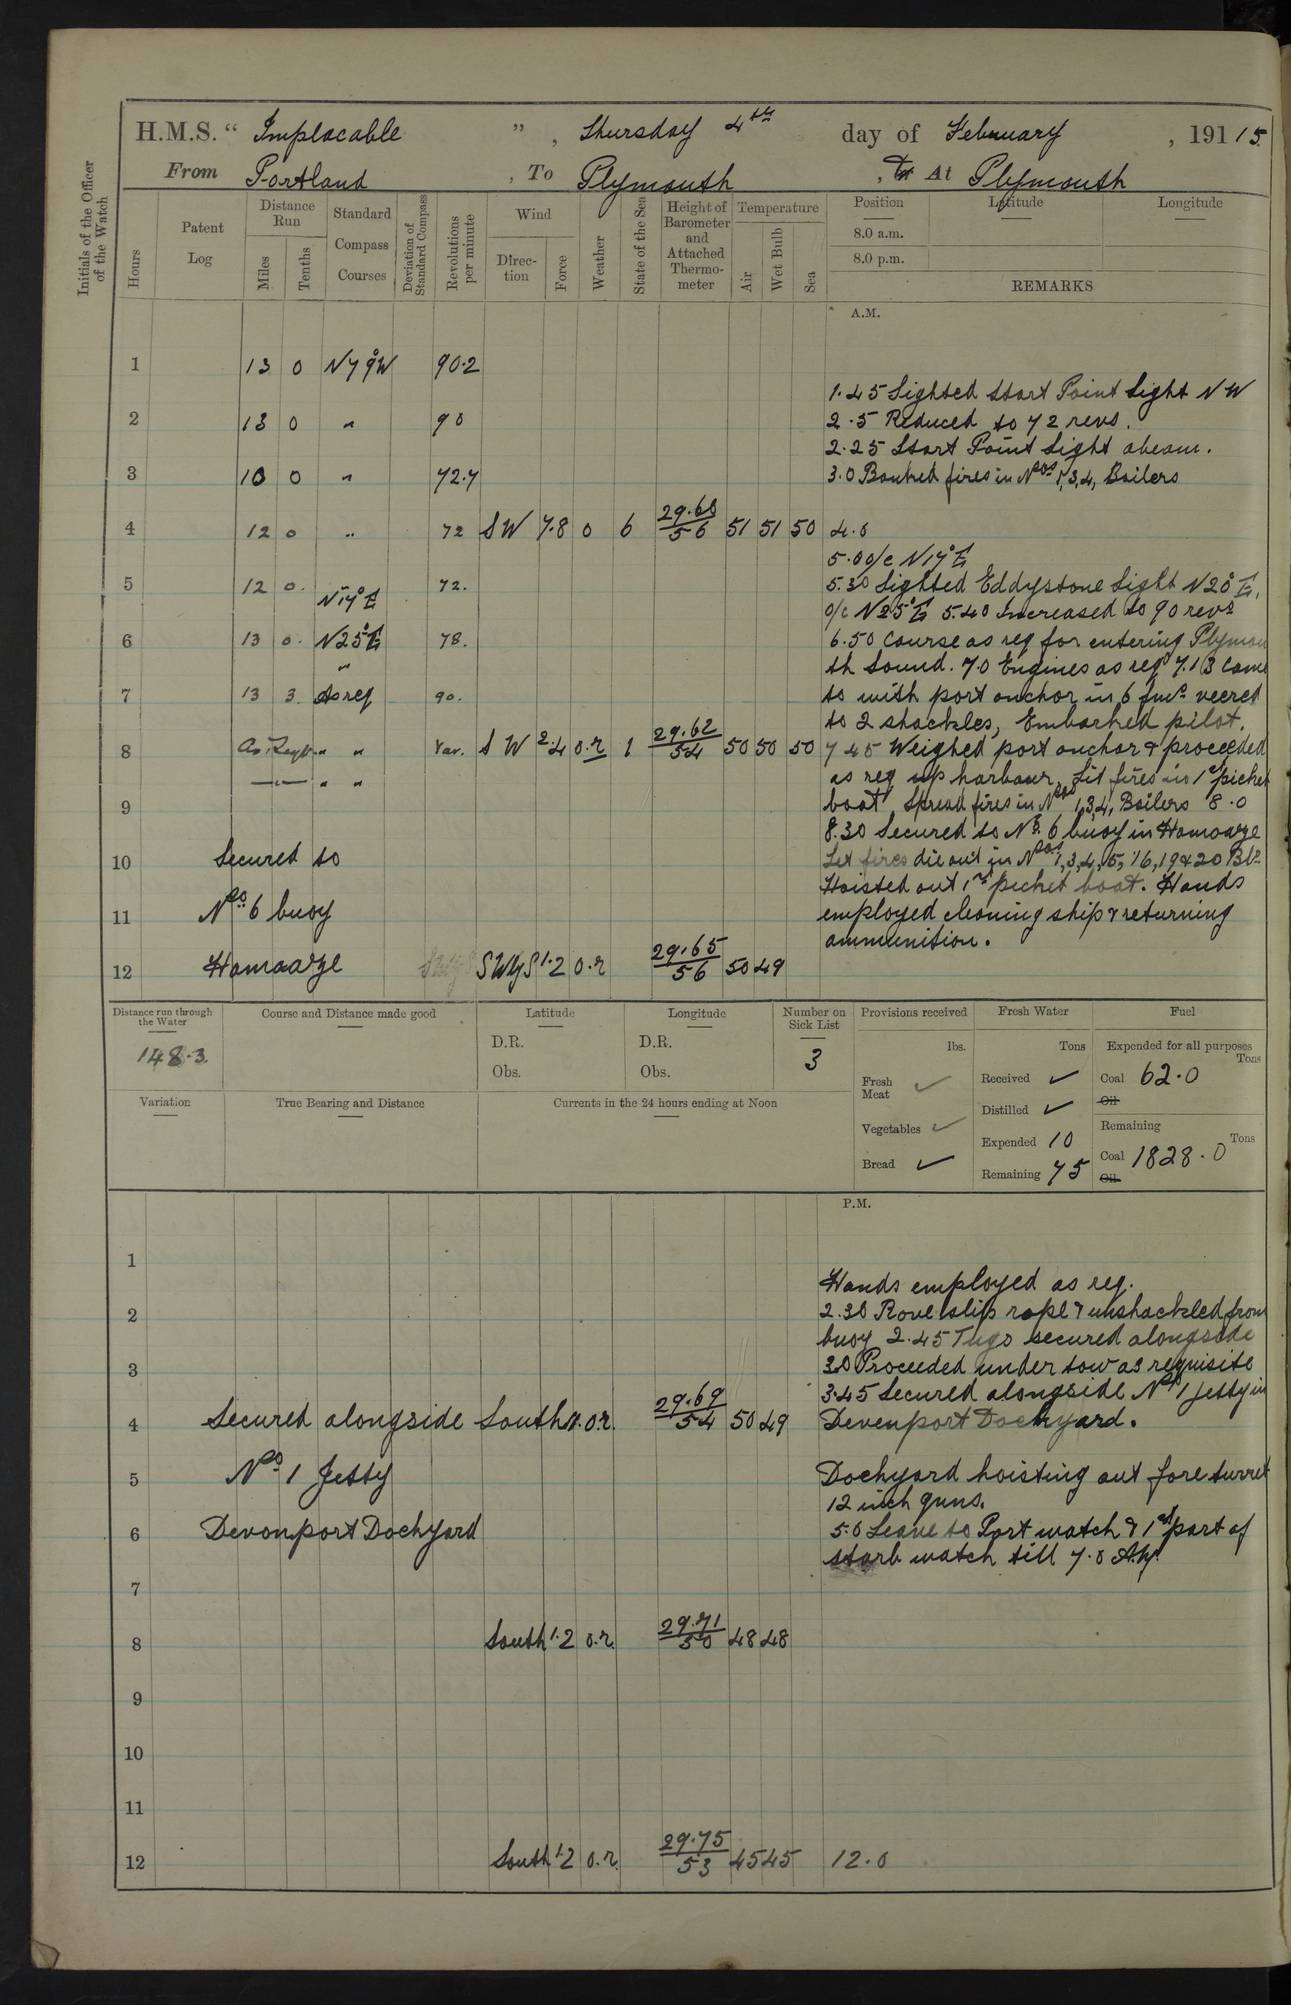 H.M.S. " Implacable ", Thursday 4th day of February, 191 15.
From Portland, To Plymouth, At Plymouth
Initials of the Officer of the Watch
Hours
Patent Log
Distance Run
Miles
Tenths
Standard Compass Courses
Deviation of Standard Compass
Revolutions per minute
Wind
Direction
Force
Weather
State of the Sea
Height of Barometer and Attached Thermometer
Temperature
Air
Wet Bulb
Sea
Position Latitude Longitude
8.0 a.m.
8.0 p.m.
REMARKS
A.M.
1 13 0 N79°W 90.2
1.45 Sighted Start Point Light NW
2 13 0 " 90 2.5 Reduced to 72 revs.
2.25 Start Point Light abeam.
3 10 0 " 72.7 3.0 Banked fires in Nos 1, 3, 4, Boilers
4 12 0 " 72 SW 7.8 0 6 29.60 56 51 51 50 4.0
5.0 o/c N17°E
5 12 0. N17°E 72. 5.30 Sighted Eddystone Light N20°E,
o/c N25°E 5.40 Increased to 90 revs
6 13 0. N25°E 78. 6.50 Course as req for entering Plymou
" th Sound. 7.0 Engines as req 7.13 Came
7 13 3. As req 90. to with port anchor in 6 fms veered
to 2 shackles, Embarked pilot.
8 As Req. " " Var. SW 2.4 o.r 1 29.62 54 50 50 50 7 45 Weighed port anchor & proceeded
" " as req up harbour, Lit fires in 1st picket
9 boat Spread fires in Nos 1,3,4, Boilers 8.0
8.30 Secured to No 6 buoy in Hamoaze
10 Secured to Let fires die out in Nos 1,3,4,15,16,19&20 Blrs
Hoisted out 1st picket boat. Hands
11 No 6 buoy employed cleaning ship & returning
ammunition.
12 Hamoaze SWyS 1.2 o.r 29.65 56 50 49
Distance run through the Water
148.3.
Course and Distance made good
Latitude
D.R.
Obs.
Longitude
D.R.
Obs.
Number on Sick List
3
Variation
True Bearing and Distance
Currents in the 24 hours ending at Noon
Provisions received
lbs.
Fresh Meat ✓
Vegetables ✓
Bread ✓
Fresh Water
Tons
Received ✓
Distilled ✓
Expended 10
Remaining 75
Fuel
Expended for all purposes
Tons
Coal 62.0
Oil
Remaining
Tons
Coal 1828.0
Oil
P.M.
1
Hands employed as req.
2 2.30 Rove slip rope & unshackled from
buoy 2.45 Tugs secured alongside
3 3.0 Proceeded under tow as requisite
3.45 Secured alongside No 1 Jetty in
4 Secured alongside South 1. o.r. 29.69 54 50 49 Devenport Dockyard.
5 No 1 Jetty Dockyard hoisting out fore turret
12 inch guns.
6 Devonport Dockyard 5.0 Leave to Port watch & 1st part of
starb watch till 7.0 A.M.
7
8 South 1.2 o.r. 29.71 50 48 48
9
10
11
12 South 1.2 o.r. 29.75 53 45 45 12.0